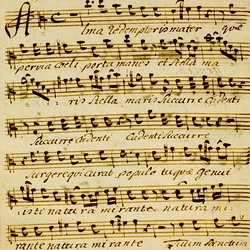 Alma Redemptoris mater quæ
pervia coeli porta manes et stella ma
ris stella maris Succurre Cadenti
Succurre Cadenti Cadenti Succurre
Surgere qui curat populo tu quæ genui
isti natura mirante natura mi
rante natura mirante tuum Sanctum